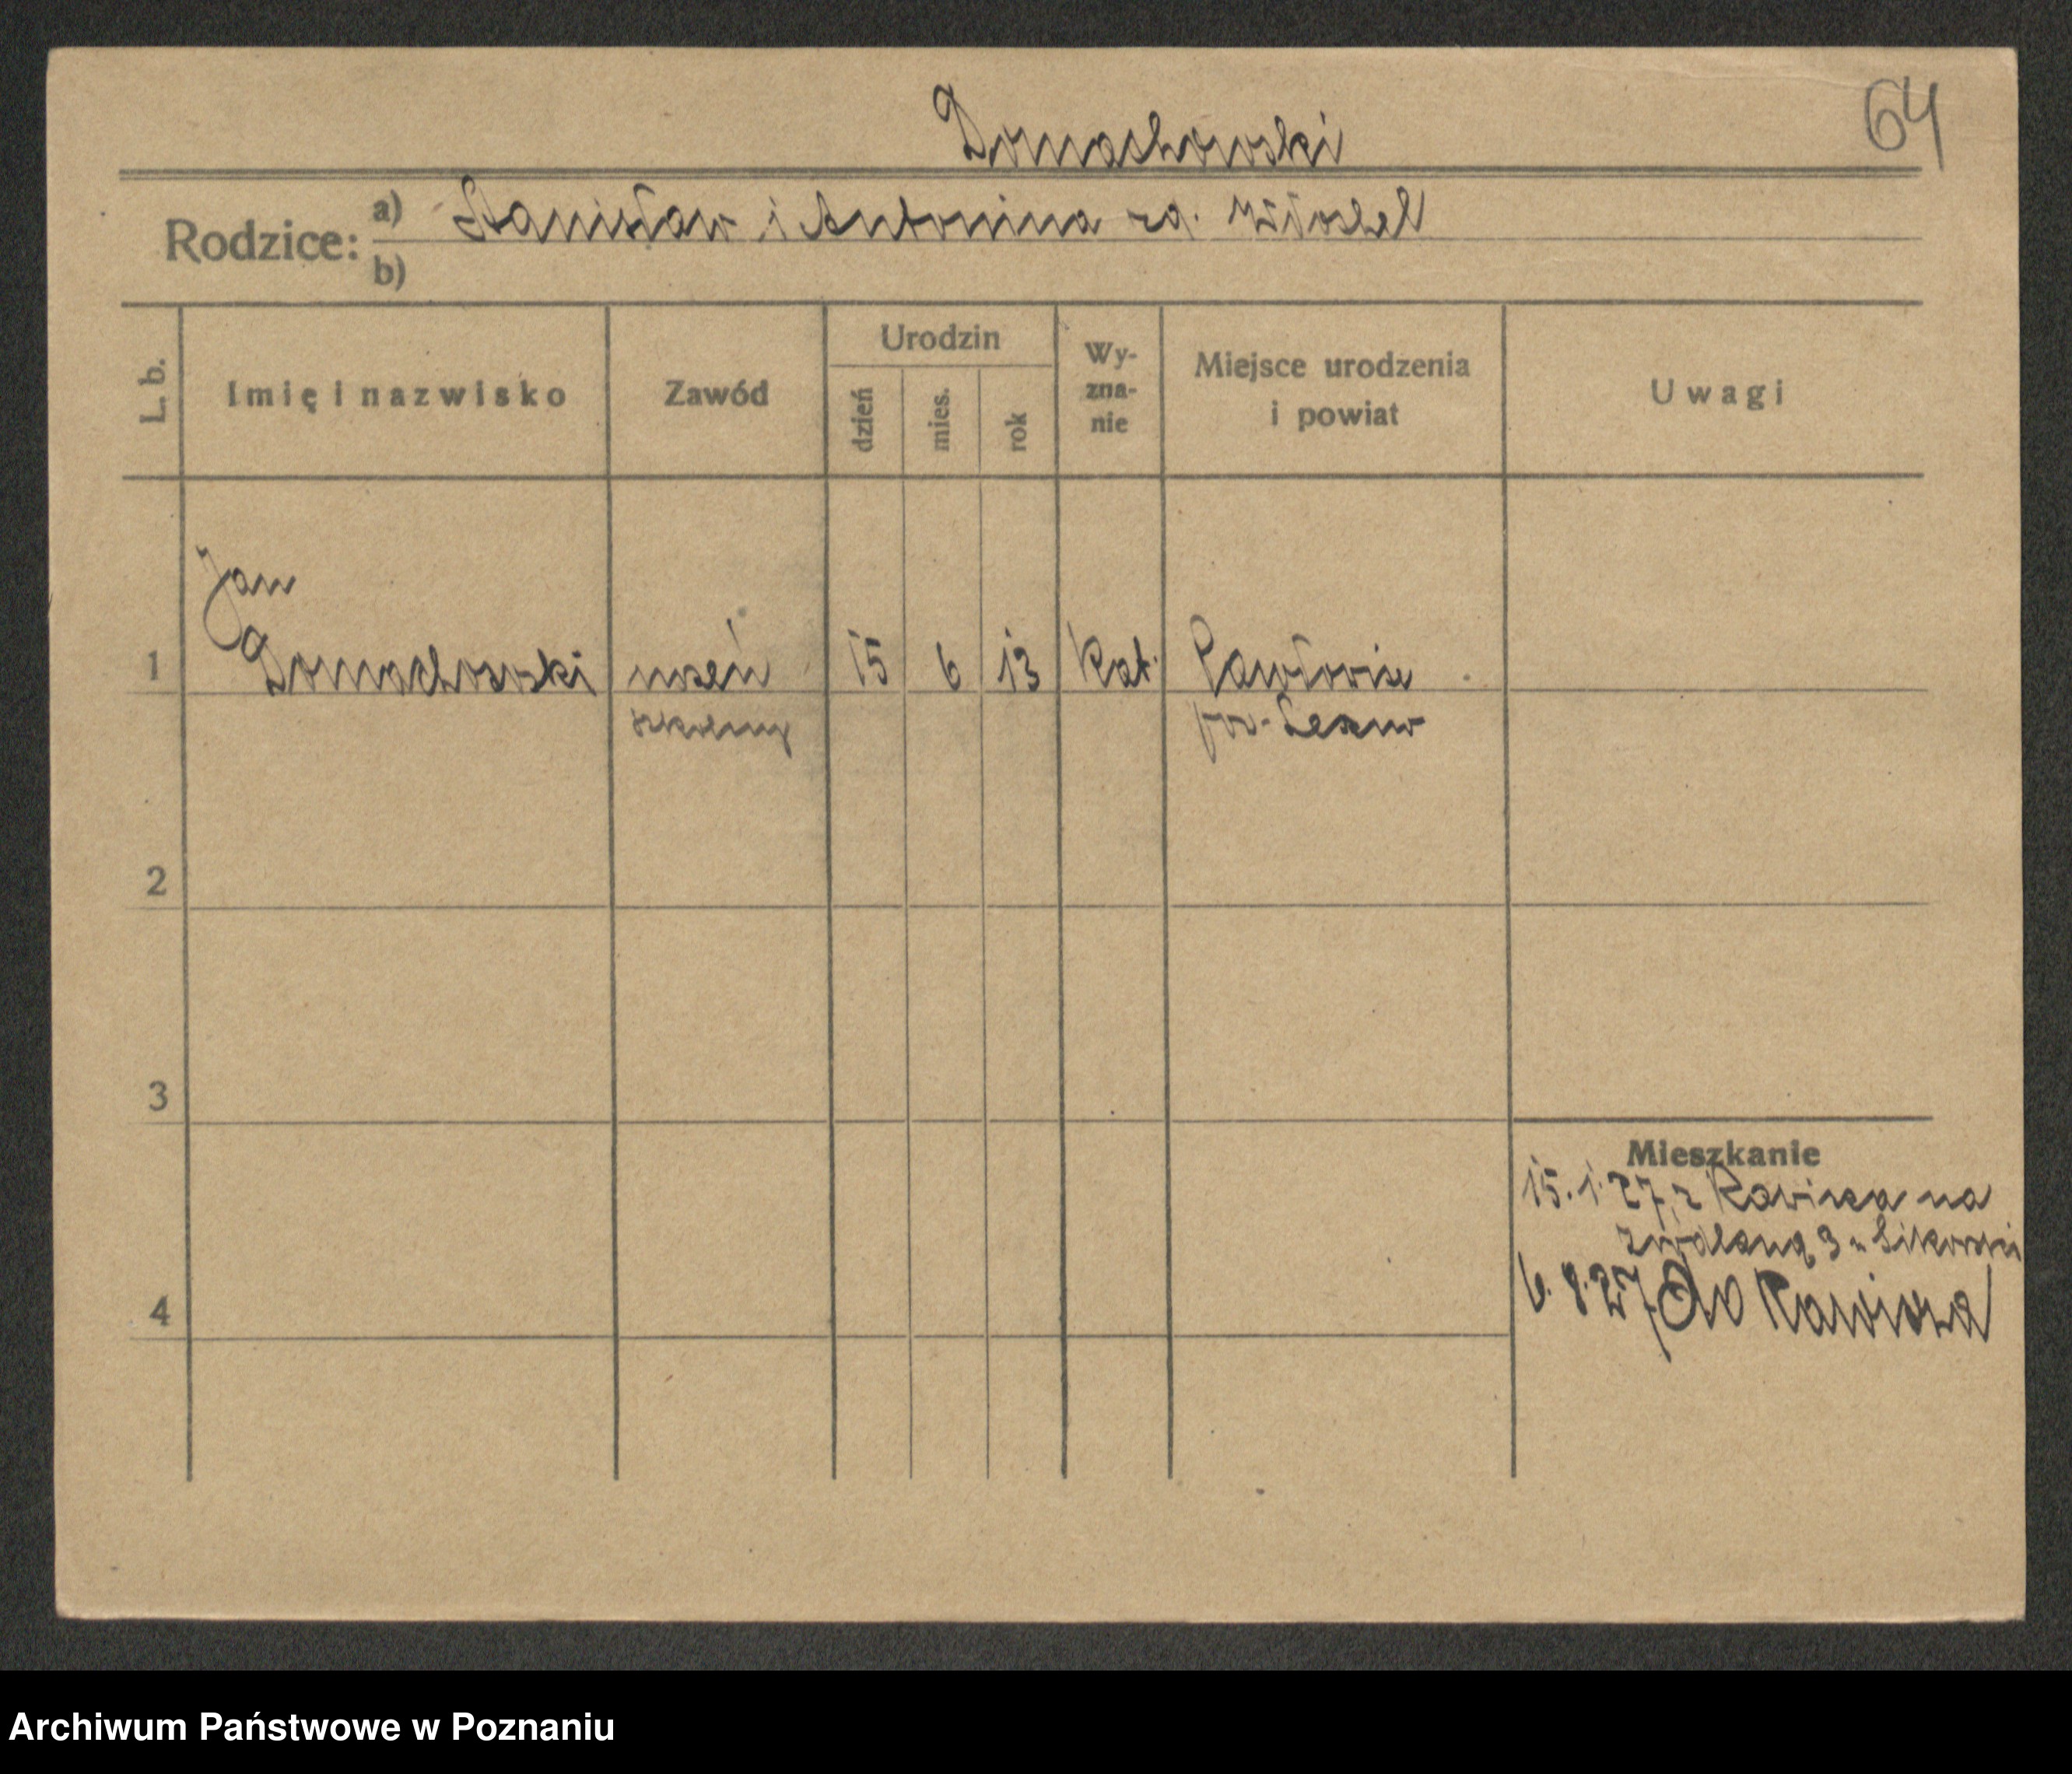 Domachowski
64
Rodzice:
a) Stanisław i Antonina zd.
b)
L. b.
Imię i nazwisko
Zawód
Urodzin
dzień
mies.
rok
Wy-
zna-
nie
Miejsce urodzenia
i powiat
Uwagi
Jan
1 Domachowski uczeń 15 6 13 Kat. Pawłowice
szkolny pow. Leszno
2
3
Mieszkanie
15.1.27 z Rawicza na
3 u Sikorski
4
6.8.27 do Rawicza
Archiwum Państwowe w Poznaniu